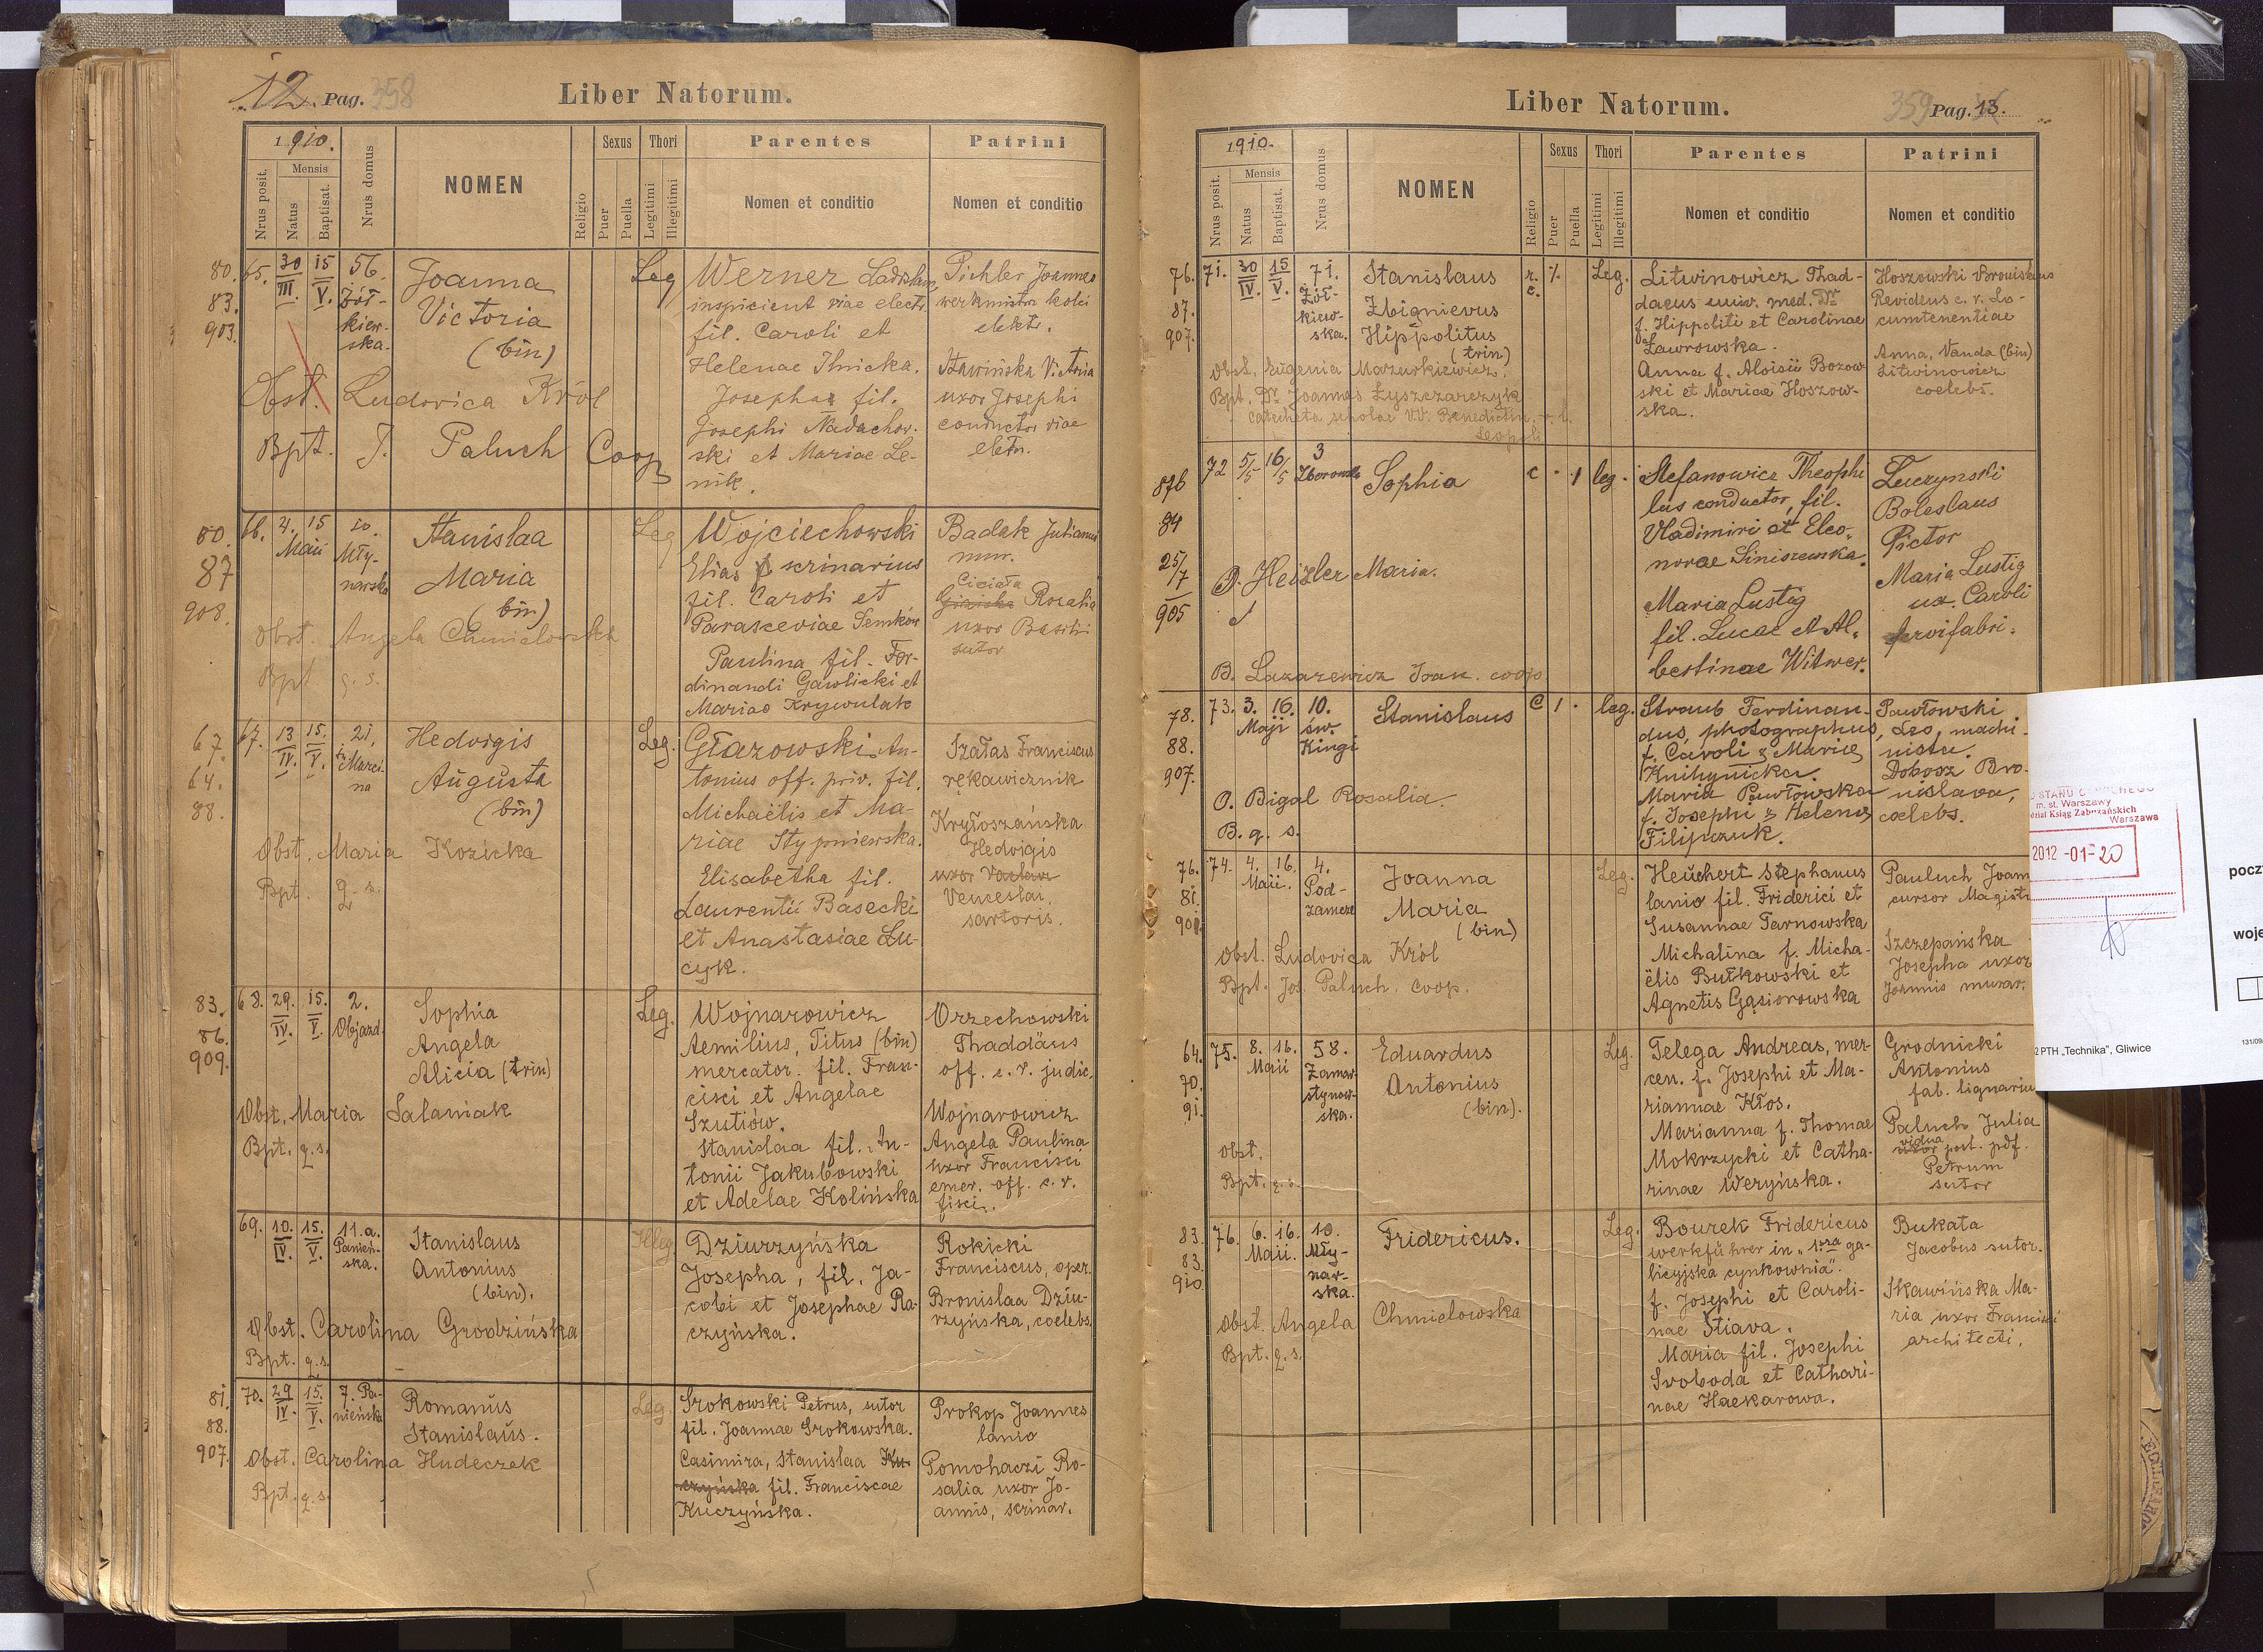 12. Pag. 358
Liber Natorum.
1910.
Nrus posit.
Mensis
Natus
Baptisat.
Nrus domus
NOMEN
Religio
Sexus
Puer
Puella
Thori
Legitimi
Illegitimi
Parentes
Nomen et conditio
Patrini
Nomen et conditio
80.
83.
903.
65.
30
III.
15
V.
56.
Żół-
kiew-
ska.
Joanna
Victoria
(bin)
Obst. Ludovica Król
Bpt. J. Paluch Coop
Leg
Werner Ladislaus
inspicient viae electr.
fil. Caroli et
Helenae Ilnicka.
Josepha fil.
Josephi Nadachow-
ski et Mariae Le-
nik.
Pichler Joannes
werkmistrz kolei
elektr.
Sławińska Victoria
uxor Josephi
conductor viae
eletr.
80.
87
908.
66.
4.
Maii
15
10
Mły-
narska
Stanislaa
Maria
(bin)
Obst. Angela Chmielowska
Bpt. q. s.
Leg
Wojciechowski
Elias scrinarius
fil. Caroli et
Parasceviae Semków
Paulina fil. Fer-
dinandi Gawlicki et
Mariae Krywulak
Badak Julianus
mur.
Ciciała
Rozalia
uxor Basilii
sutor
67.
64.
88.
67.
13
IV.
15.
V.
21,
Marci-
na
Hedvigis
Augusta
(bin)
Obst. Maria Kozicka
Bpt. q. s.
Leg.
Głazowski An-
tonius off. priv. fil.
Michaëlis et Ma-
riae Stypniewska.
Elisabetha fil.
Laurentii Basecki
et Anastasiae Lu-
cyk.
Szałas Franciscus
rękawicznik
Kryłoszańska
Hedvigis
uxor Vaclav
Venceslai,
sartoris.
83.
86.
909.
68.
29.
IV.
15.
V.
2.
Objazd
Sophia
Angela
Alicia (trin)
Obst. Maria Salaniak
Bpt. q. s.
Leg.
Wojnarowicz
Aemilius, Titus (bin)
mercator. fil. Fran-
cisci et Angelae
Szutiów.
Stanislaa fil. An-
tonii Jakubowski
et Adelae Kolińska
Orzechowski
Thaddäus
off. c. r. judic.
Wojnarowicz
Angela Paulina
uxor Francisci
emer. off. c. r.
fisci.
69.
10.
IV.
15.
V.
11.a.
Panień-
ska.
Stanislaus
Antonius
(bin).
Obst. Carolina Grodzińska
Bpt. q. s.
Illeg.
Dziurzyńska
Josepha, fil. Ja-
cobi et Josephae Ra-
czyńska.
Rokicki
Franciscus, oper.
Bronislaa Dziu-
rzyńska, coelebs.
81.
88.
907.
70.
29
IV.
15.
V.
7. Pa-
nieńska
Romanus
Stanislaus.
Obst. Carolina Hudeczek
Bpt. q. s.
Leg.
Srokowski Petrus, sutor
fil. Joannae Srokowska.
Casimira, Stanislaa Ku-
czyńska fil. Franciscae
Kuczyńska.
Prokop Joannes
lanio
Pomohaczi Ro-
salia uxor Jo-
annis, scrinar.
Liber Natorum.
359 Pag. 13.
1910.
Nrus posit.
Mensis
Natus
Baptisat.
Nrus domus
NOMEN
Religio
Sexus
Puer
Puella
Thori
Legitimi
Illegitimi
Parentes
Nomen et conditio
Patrini
Nomen et conditio
76.
87.
907.
71.
30
IV.
15
V.
71.
Żół-
kiew-
ska.
Stanislaus
Zbignievus
Hippolitus
(trin)
Obst. Eugenia Mazurkiewicz.
Bpt. Dr. Joannes Łyszczarczyk
catecheta scholae VV. Benedictin. r. l.
Leopoli
r.
c.
Leg.
Litwinowicz Thad-
daeus univ. med. Dr.
f. Hippoliti et Carolinae
Ławrowska.
Anna f. Aloisii Bozow-
ski et Mariae Hoszow-
ska.
Hoszowski Bronislaus
Revidens c. r. Lo-
cumtenentiae
Anna, Vanda (bin)
Litwinowicz
coelebs.
876
84
25/7
905
72
5/5
16/5
3
Sophia
O. Heizler Maria.
B. Lazarewicz Joan. coop
c
1
leg.
Stefanowicz Theophi
lus conductor, fil.
Vladimiri et Eleo-
norae Siniszewska.
Maria Lustig
fil. Lucae et Al-
bestinae Witwer.
Luczynski
Boleslaus
Pictor
Maria Lustig
ux. Caroli
fervifabri.
78.
88.
907.
73.
3.
Maji
16.
10.
św.
Kingi
Stanislaus
O. Bigal Rosalia.
B. q. s.
C
1
leg.
Straub Ferdinan-
dus, photographus,
f. Caroli & Mariae
Knihynicka.
Maria Pawłowska
f. Josephi & Helenae
Filipczuk.
Pawłowski
Leo, machi-
nista.
Dobosz Bro-
nislava,
coelebs.
76.
81.
901.
74.
4.
Maii.
16.
4.
Pod-
zamcze
Joanna
Maria
(bin)
Obst. Ludovica Król
Bpt. Jos. Paluch. coop.
Leg.
Heuchert Stephanus
lanio fil. Friderici et
Susannae Tarnowska
Michalina f. Micha-
ëlis Butkowski et
Agnetis Gąsiorowska
Pauluch Joan
cursor Magistr
Szczepańska
Josepha uxor
Joannis murar.
64.
70.
91.
75.
8.
Maii
16.
58.
Zamar-
stynow-
ska.
Eduardus
Antonius
(bin).
Obst.
Bpt. q. s.
Leg.
Telega Andreas, mer-
cen. f. Josephi et Ma-
riannae Kłos.
Marianna f. Thomae
Mokrzycki et Catha-
rinae Weryńska.
Grodnicki
Antonius
fab. lignariu
Paluch Julia
vidua
uxor post. pdf.
Petrum
sutor
83.
83.
910
76.
6.
Maii.
16.
10.
Mły-
nar-
ska.
Fridericus.
Obst. Angela Chmielowska
Bpt. q. s.
Leg.
Bourek Fridericus
werkführer in „1sza ga-
licyjska cynkownia".
f. Josephi et Caroli-
nae Štiava.
Maria fil. Josephi
Svoboda et Cathari-
nae Hackarowa.
Bukata
Jacobus sutor.
Skawińska Ma-
ria uxor Francisci
architecti.
m. st. Warszawy
dział Ksiąg Zabużańskich
Warszawa
2012 -01- 20
pocz
woje
2 PTH „Technika", Gliwice
131/09